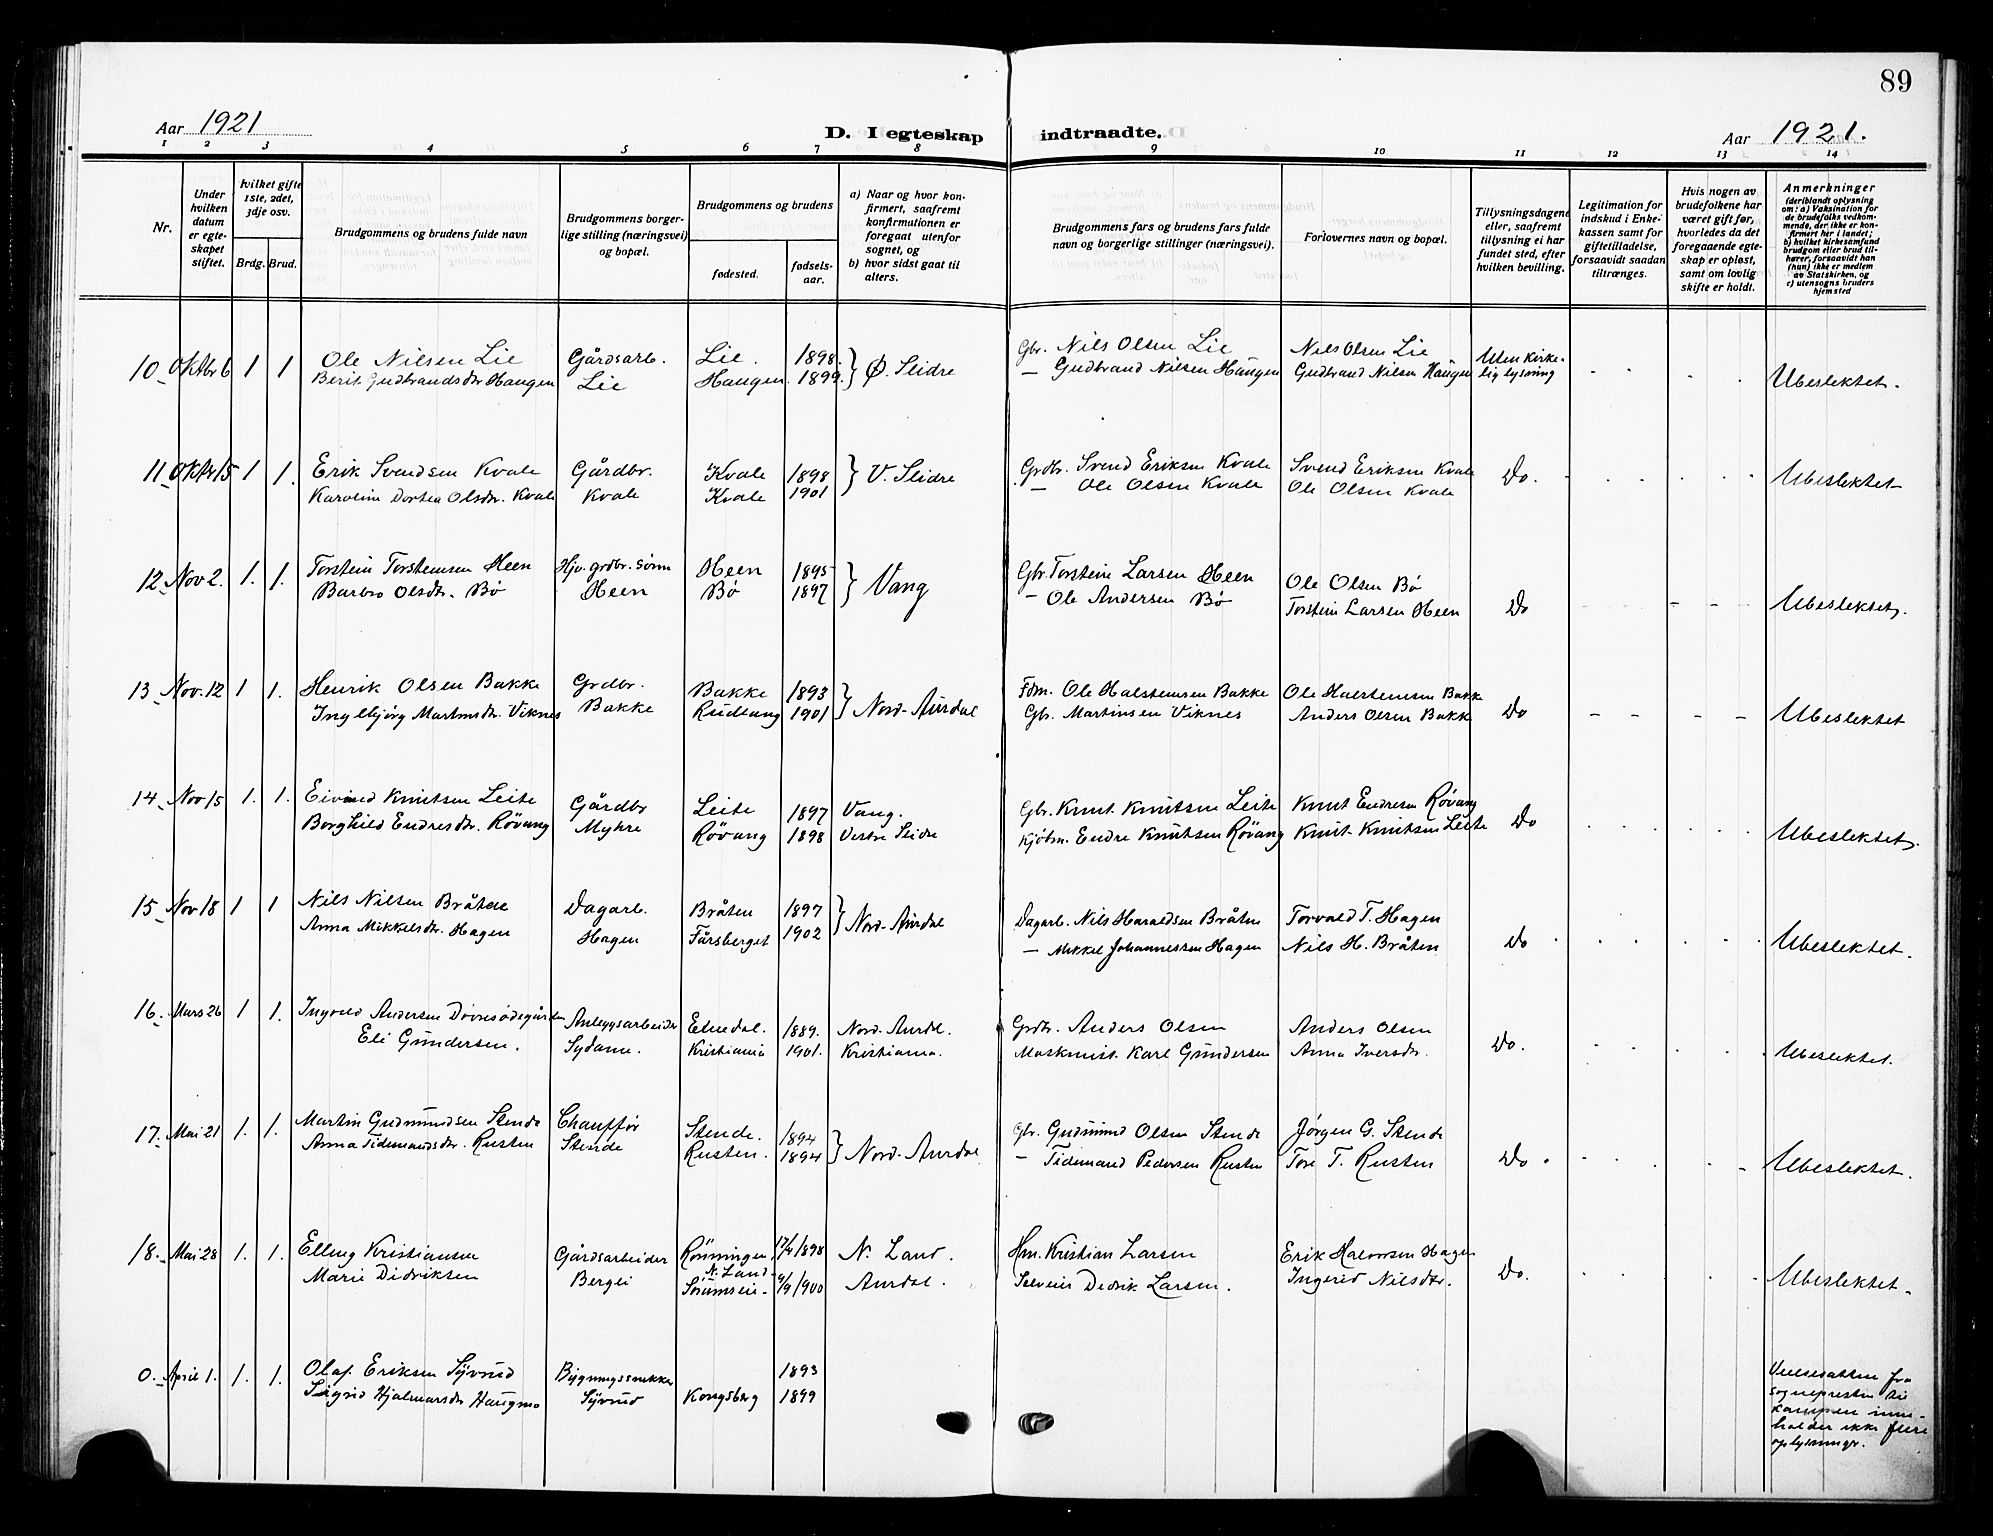 89
Aar 1921
D. I egteskap indtraadte.
Aar 1921.
1 2 3 4 5 6 7 8 9 10 11 12 13 14
Nr.
Under hvilken datum er egteskapet stiftet.
hvilket gifte 1ste, 2det, 3dje osv.
Brdg. Brud.
Brudgommens og brudens fulde navn
Brudgommens borgerlige stilling (næringsvei) og bopæl.
Brudgommens og brudens
fødested.
fødselsaar.
a) Naar og hvor konfirmert, saafremt konfirmationen er foregaat utenfor sognet, og
b) hvor sidst gaat til alters.
Brudgommens fars og brudens fars fulde navn og borgerlige stillinger (næringsvei).
Forlovernes navn og bopæl.
Tillysningsdagene eller, saafremt tillysning ei har fundet sted, efter hvilken bevilling.
Legitimation for indskud i Enkekassen samt for giftetilladelse, forsaavidt saadan tiltrænges.
Hvis nogen av brudefolkene har været gift før, hvorledes da det foregaaende egteskap er opløst, samt om lovlig skifte er holdt.
Anmerkninger (deriblandt oplysning om: a) Vaksination for de brudefolks vedkommende, der ikke er konfirmert her i landet; b) hvilket kirkesamfund brudgom eller brud tilhører, forsaavidt han (hun) ikke er medlem av Statskirken, og c) utensogns bruders hjemsted
10 Oktbr 6 1 1 Ole Nilsen Lie Gårdsarb. Lie. 1898. } Ø. Slidre Gbr. Nils Olsen Lie Nils Olsen Lie Uten kirke-
Berit Gudbrandsdtr Haugen Lie Haugen. 1899. — Gudbrand Nilsen Haugen Gudbrand Nilsen Haugen lig lysning Ubeslektet.
11 Oktbr 15 1 1. Erik Svendsen Kvale Gårdbr. Kvale 1898 } V. Slidre Grdbr. Svend Eriksen Kvale Svend Eriksen Kvale
Karoline Dortea Olsdtr. Kvale Kvale Kvale 1901 — Ole Olsen Kvale Ole Olsen Kvale Do. Ubeslektet
12 Nov 2. 1. 1. Torstein Torsteinsen Heen Hjv. grdbr. sønn Heen 1895 } Vang Gbr. Torstein Larsen Heen Ole Olsen Bø
Barbro Olsdtr. Bø Heen Bø 1897 — Ole Andersen Bø Torstein Larsen Heen Do Ubeslektet.
13 Nov. 12 1 1. Henrik Olsen Bakke Grdbr. Bakke 1893 } Nord-Aurdal Fdm. Ole Halsteinsen Bakke Ole Halsteinsen Bakk
Ingebjørg Martinsdtr. Viknes Bakke Rudtang 1901 Gbr. Martinsen Viknes Anders Olsen Bakk Do Ubeslektet
14. Nov 15 1. 1. Eivind Knutsen Leite Gårdbr Leite 1897 Vang. Gbr. Knut Knutsen Leite Knut Endresen Røvang
Borghild Endresdtr. Røvang Myhre Røvang 1898 Vestre Slidre Kjøbm. Endre Knutsen Røvang Knut Knutsen Leite Do Ubeslektet.
15 Nov 18 1 1 Nils Nilsen Bråten Dagarb. Bråten 1897 } Nord-Aurdal Dagarb. Nils Haraldsen Bråten Torvald T. Hagen
Anna Mikkelsdtr. Hagen Hagen Fårsberget 1902 — Mikkel Johannessen Hagen Nils H. Bråten Do Ubeslektet.
16. Mars 26 1 1. Ingvald Andersen Anleggsarbeider Etnedal. 1889. Nord-Aurdal. Grdbr. Anders Olsen Anders Olsen
Eli Gundersen. Kristiania 1901. Kristiania. Maskinist. Karl Gundersen Anna Iversdtr. Do. Ubeslektet.
17. Mai 21 1. 1. Martin Gudmundsen Stende Chauffør Stende. 1894 } Nord-Aurdal Gbr. Gudmund Olsen Stende Jørgen G. Stende
Anna Tidemandsdtr. Rusten Stende Rusten. 1894 — Tidemand Pedersen Rusten Tore T. Rusten Do Ubeslektet.
18. Mai 28 1. 1. Elling Kristiansen Gårdsarbeider Rønningen, N. Land 17/4 1898 N. Land. Hm. Kristian Larsen Erik Halvorsen Hagen
Marie Didriksen Bergli 9/9 1900 Aurdal. Selveier Dedrik Larsen. Ingerid Nilsdtr. Do. Ubeslektet.
0. April 1. 1. 1. Olaf Eriksen Syvrud Bygningssnekker 1893
Sigrid Hjalmarsdtr Haugmo Syvrud Kongsberg 1899
Vielsesatten fra
sognepresten til
Kampen inne-
holder ikke flere
oplysninger.